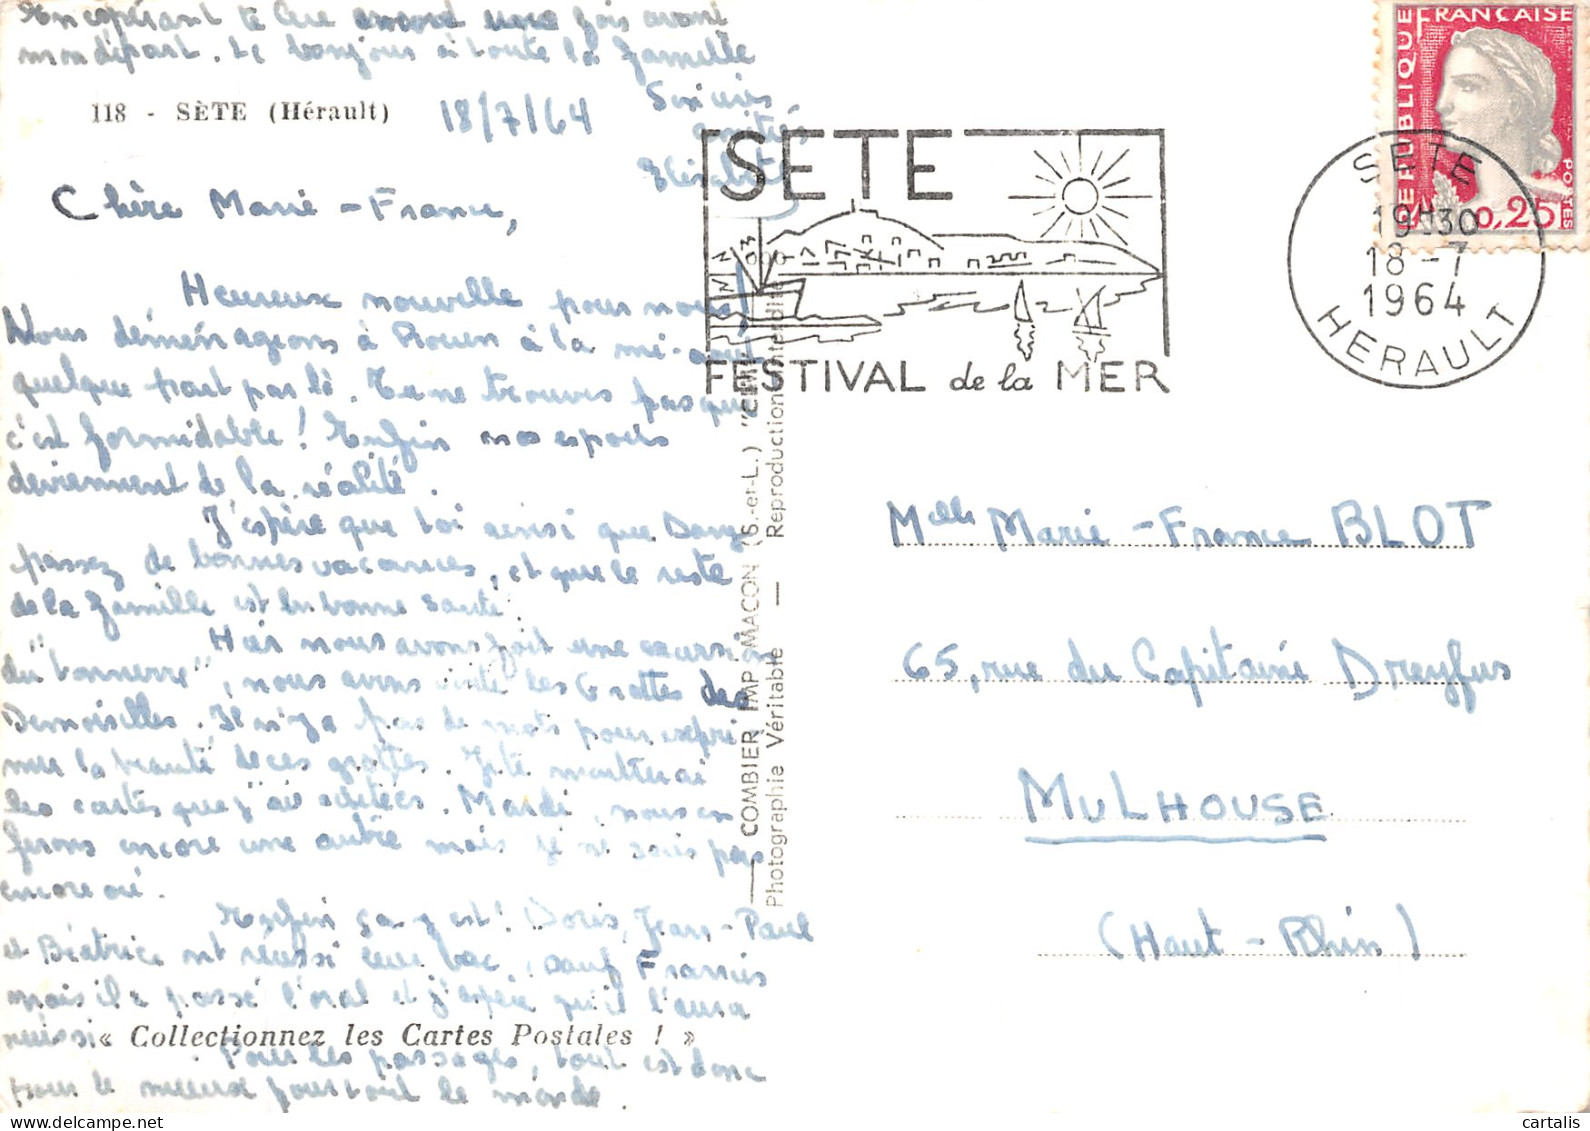 En espérant te lire encore une fois avant
mon départ. Le bonjour à toute la famille
118 - SÈTE (Hérault)
18/7/64
Sincères
amitiés
Elisabeth
Chère Marie-France,
Heureuse nouvelle pour nous!
Nous déménageons à Rouen à la mi-août
quelque part par là. Tu ne trouves pas que
c'est formidable! Enfin nos espoirs
deviennent de la réalité.
J'espère que toi ainsi que Dany
passez de bonnes vacances, et que le reste
de la famille est en bonne santé.
Hier nous avons fait une excursion
du "tonnerre", nous avons visité les Grottes des
Demoiselles. Il n'y a pas de mots pour expri
mer la beauté de ces grottes. Je te montrerai
les cartes que j'ai achetées. Mardi, nous en
ferons encore une autre mais je ne sais pas
encore où.
Enfin ça y est! Doris, Jean-Paul
et Béatrice ont réussi leur bac, sauf Francis
mais il a passé l'oral et j'espère qu'il l'aura
réussi.
« Collectionnez les Cartes Postales ! »
Pour les passages, tout est donc
pour le mieux pour tout le monde.
COMBIER IMP. MACON (S.-et-L.) "CIM"
Photographie Véritable — Reproduction interdite
SETE
FESTIVAL de la MER
REPUBLIQUE FRANÇAISE
POSTES
0,25
SETE
19H30
18 -7
1964
HERAULT
Melle Marie-France BLOT
65, rue du Capitaine Dreyfus
MULHOUSE
(Haut-Rhin)
cartalis
delcampe.net